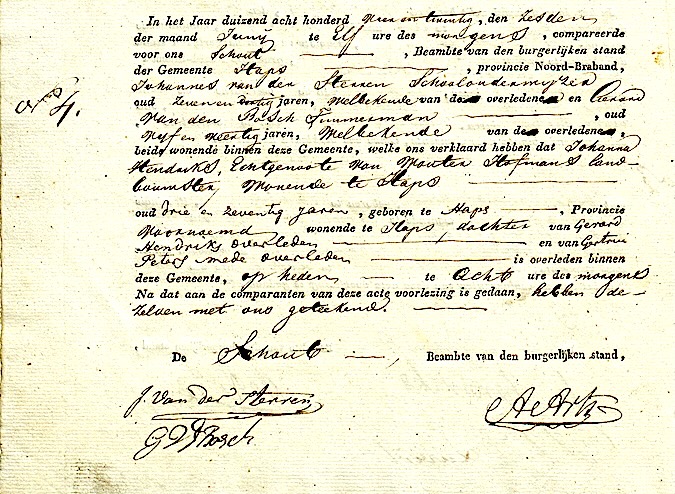 In het Jaar duizend acht honderd vier en twintig, den zesden
der maand Juny te Elf ure des morgens, compareerde
voor ons Schout, Beambte van den burgerlijken stand
der Gemeente Haps, provincie Noord-Braband,
Johannes van der Sterren Schoolondermyzer
oud zeven en jaren, Welbekende van de overledene en Gerard
van den Bosch Timmerman, oud
vyf en veertig jaren, Welbekende van de overledene,
beide wonende binnen deze Gemeente, welke ons verklaard hebben dat Johanna
Hendriks, Echtgenoote van Wouter Hofmans land-
bouwster, Wonende te Haps
oud drie en zeventig jaren, geboren te Haps, Provincie
Voornoemd wonende te Haps, dochter van Gerard
Hendriks overleden en van Gertrui
Peters mede overleden is overleden binnen
deze Gemeente, op heden te Acht ure des morgens
Na dat aan de comparanten van deze acte voorlezing is gedaan, hebben de-
zelven met ons geteekend.
No 4.
De Schout, Beambte van den burgerlijken stand,
J. Van der Sterren
A Artz
G V D Bosch